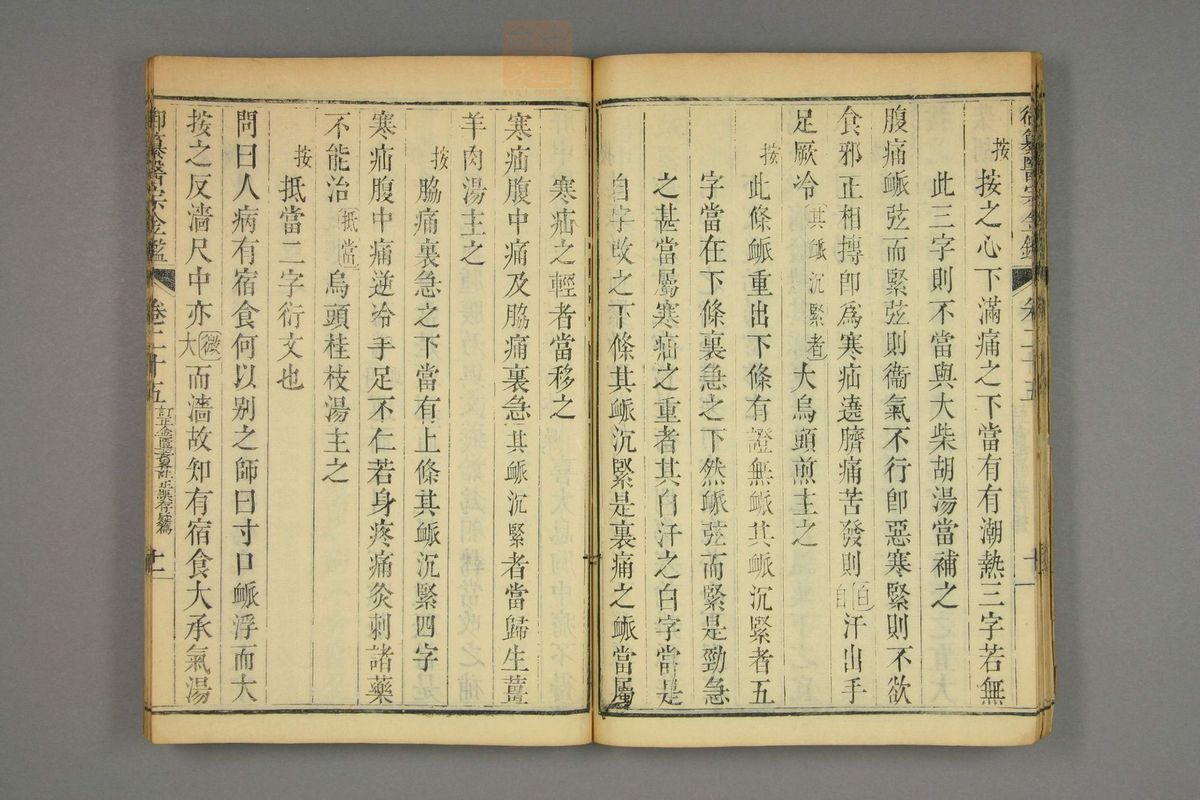 御纂醫宗金鑑
卷二十五
十一
按按之心下滿痛之下當有有潮熱三字若無
此三字則不當與大柴胡湯當補之
腹痛衇弦而緊弦則衞氣不行卽惡寒緊則不欲
食邪正相搏卽爲寒疝遶臍痛苦發則白自汗出手
足厥冷其衇沉緊者大烏頭煎主之
按此條衇重出下條有證無衇其衇沉緊者五
字當在下條裏急之下然衇弦而緊是勁急
之甚當屬寒疝之重者其白汗之白字當是
自字改之下條其衇沉緊是裏痛之衇當屬
寒疝之輕者當移之
寒疝腹中痛及脇痛裏急其衇沉緊者當歸生薑
羊肉湯主之
按脇痛裏急之下當有上條其衇沉緊四字
寒疝腹中痛逆冷手足不仁若身疼痛灸刺諸藥
不能治抵當烏頭桂枝湯主之
按抵當二字衍文也
問曰人病有宿食何以別之師曰寸口衇浮而大
按之反濇尺中亦微大而濇故知有宿食大承氣湯
御纂醫宗金鑑
卷二十五
訂正金匱要畧註正誤存疑篇
十一